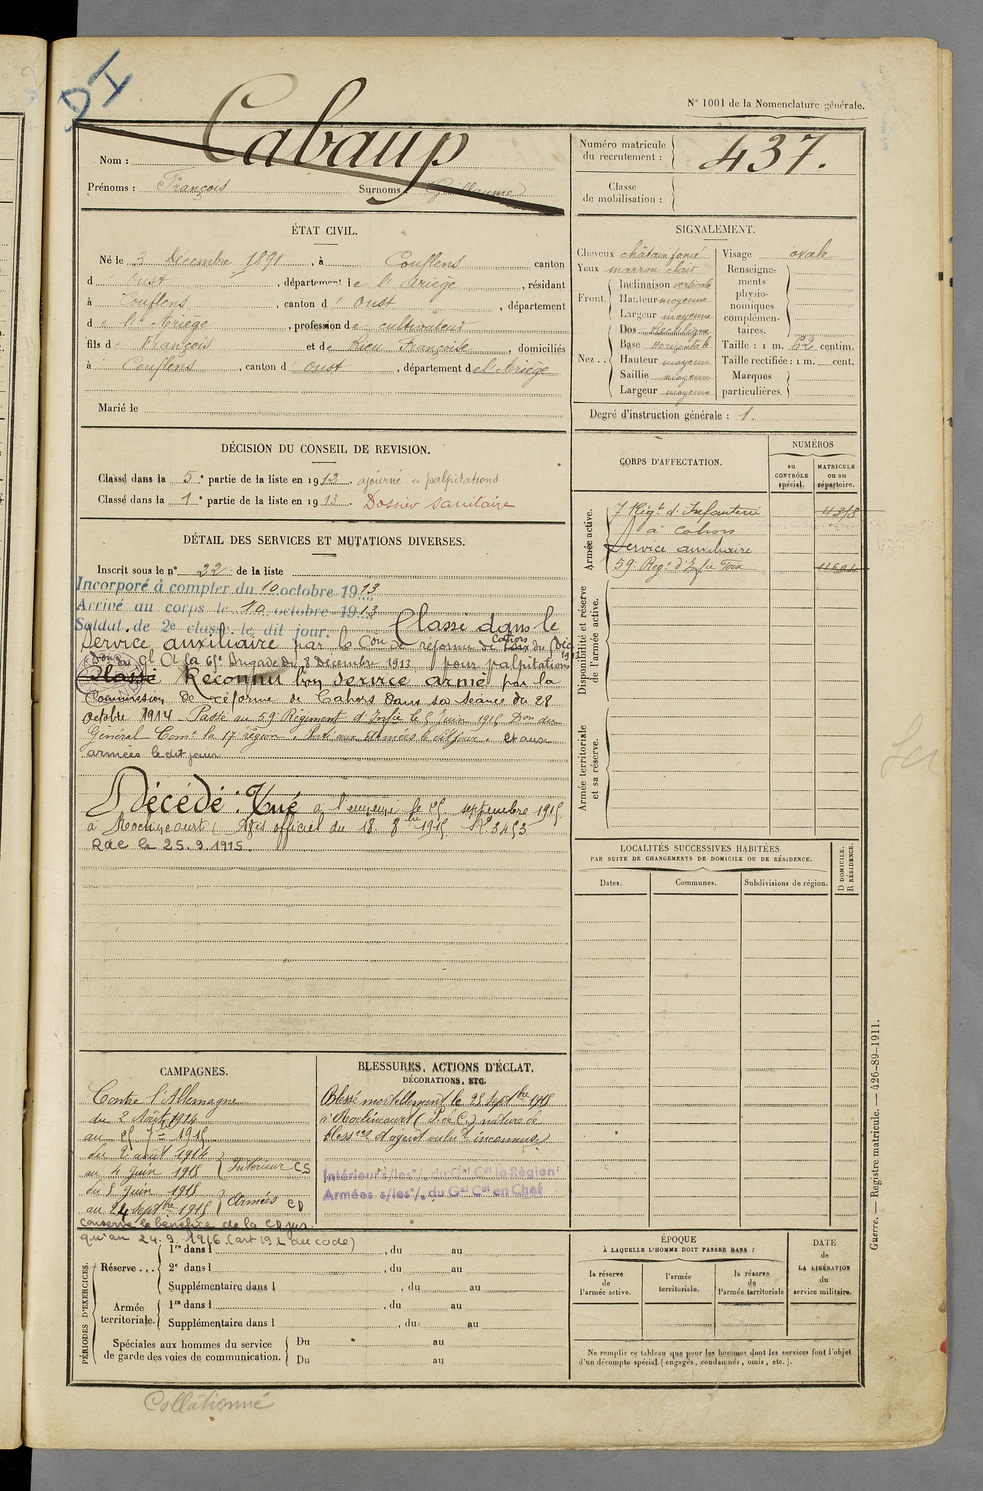 DI
N° 1001 de la Nomenclature générale.
Nom : Cabaup
Prénoms : François Surnoms : Guillaume
Numéro matricule du recrutement : 437.
Classe de mobilisation :
ÉTAT CIVIL.
Né le 3 Décembre 1891, à Couflens canton
d Oust, département de l'Ariège, résidant
à Couflens, canton d'Oust, département
de l'Ariège, profession de cultivateur
fils de François et de Rieu Françoise, domiciliés
à Couflens, canton d Oust, département de l'Ariège
Marié le
SIGNALEMENT.
Cheveux châtain foncé
Yeux marron clair
Front. Inclinaison verticale
Hauteur moyenne
Largeur moyenne
Nez .. Dos Rectiligne
Base Horizontale
Hauteur moyenne
Saillie moyenne
Largeur moyenne
Visage ovale
Renseignements physionomiques complémentaires.
Taille : 1 m. 62 centim.
Taille rectifiée : 1 m. cent.
Marques particulières.
Degré d'instruction générale : 1.
DÉCISION DU CONSEIL DE REVISION.
Classé dans la 5e partie de la liste en 1912. ajourné palpitations
Classé dans la 1e partie de la liste en 1913. Dossier sanitaire
DÉTAIL DES SERVICES ET MUTATIONS DIVERSES.
Inscrit sous le n° 22 de la liste
Incorporé à compter du 10 octobre 1913
Arrivé au corps le 10 octobre 1913
Soldat de 2e classe le dit jour. Classé dans le
Service auxiliaire par la Con de réforme de Cahors du Déc 1913
Don du Gl Ct la 65e Brigade du 8 Décembre 1913 pour palpitations
Classé Reconnu bon service armé par la
Commission de réforme de Cahors dans sa séance du 28
octobre 1914 - Passé au 59 Régiment d'Infie le 5 juin 1915 Don du
Général Comt la 17 région. Parti aux Armées le dit jour. et aux
armées le dit jour
Décédé : Tué à l'ennemi le 25 septembre 1915
à Roclincourt (Avis officiel du 18 8bre 1915 N° 3453
Rdc le 25.9.1915.
CORPS D'AFFECTATION.
NUMÉROS
au CONTRÔLE spécial.
MATRICULE ou au répertoire.
Armée active.
7 Régt d'Infanterie 4318
à Cahors
Service auxiliaire
59 Régt d'Infie Foix
Disponibilité et réserve de l'armée active.
Armée territoriale et sa réserve.
LOCALITÉS SUCCESSIVES HABITÉES
PAR SUITE DE CHANGEMENTS DE DOMICILE OU DE RÉSIDENCE.
Dates. Communes. Subdivisions de région. D DOMICILE. R RÉSIDENCE.
CAMPAGNES.
Contre l'Allemagne
du 2 Août 1914
au 25 7bre 1915
du 2 août 1914
au 4 juin 1915 Intérieur CS
du 5 juin 1915
au 24 septbre 1915 Armées CD
conserve le bénéfice de la CD jus
qu'au 24.9.1916 (art 192 du code)
BLESSURES, ACTIONS D'ÉCLAT.
DÉCORATIONS, ETC.
Blessé mortellement le 25 septbre 1915
à Roclincourt (P. de C.) nature de
blessres et agent vulnt inconnus.
Intérieur s/les o/ du Gal Ct la Région
Armées s/les o/ du Gal Ct en Chef
PÉRIODES D'EXERCICES.
Réserve ... 1re dans l , du au
2e dans l , du au
Supplémentaire dans l , du au
Armée territoriale. 1re dans l , du au
Supplémentaire dans l , du au
Spéciales aux hommes du service de garde des voies de communication. Du au
Du au
ÉPOQUE
À LAQUELLE L'HOMME DOIT PASSER DANS :
la réserve de l'armée active.
l'armée territoriale.
la réserve de l'armée territoriale
DATE de LA LIBÉRATION du service militaire.
Ne remplir ce tableau que pour les hommes dont les services font l'objet
d'un décompte spécial (engagés, condamnés, omis, etc.).
Guerre. — Registre matricule. — 426-89-1911.
Collationné